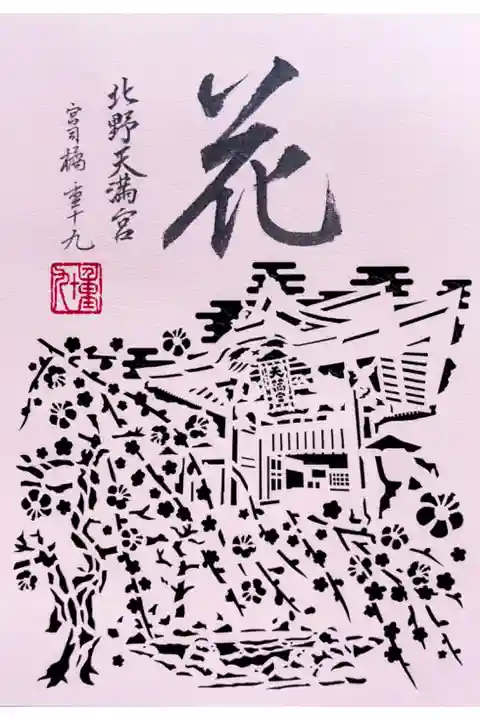 花
北野天満宮
宮司橘 重十九
重十九
天満宮